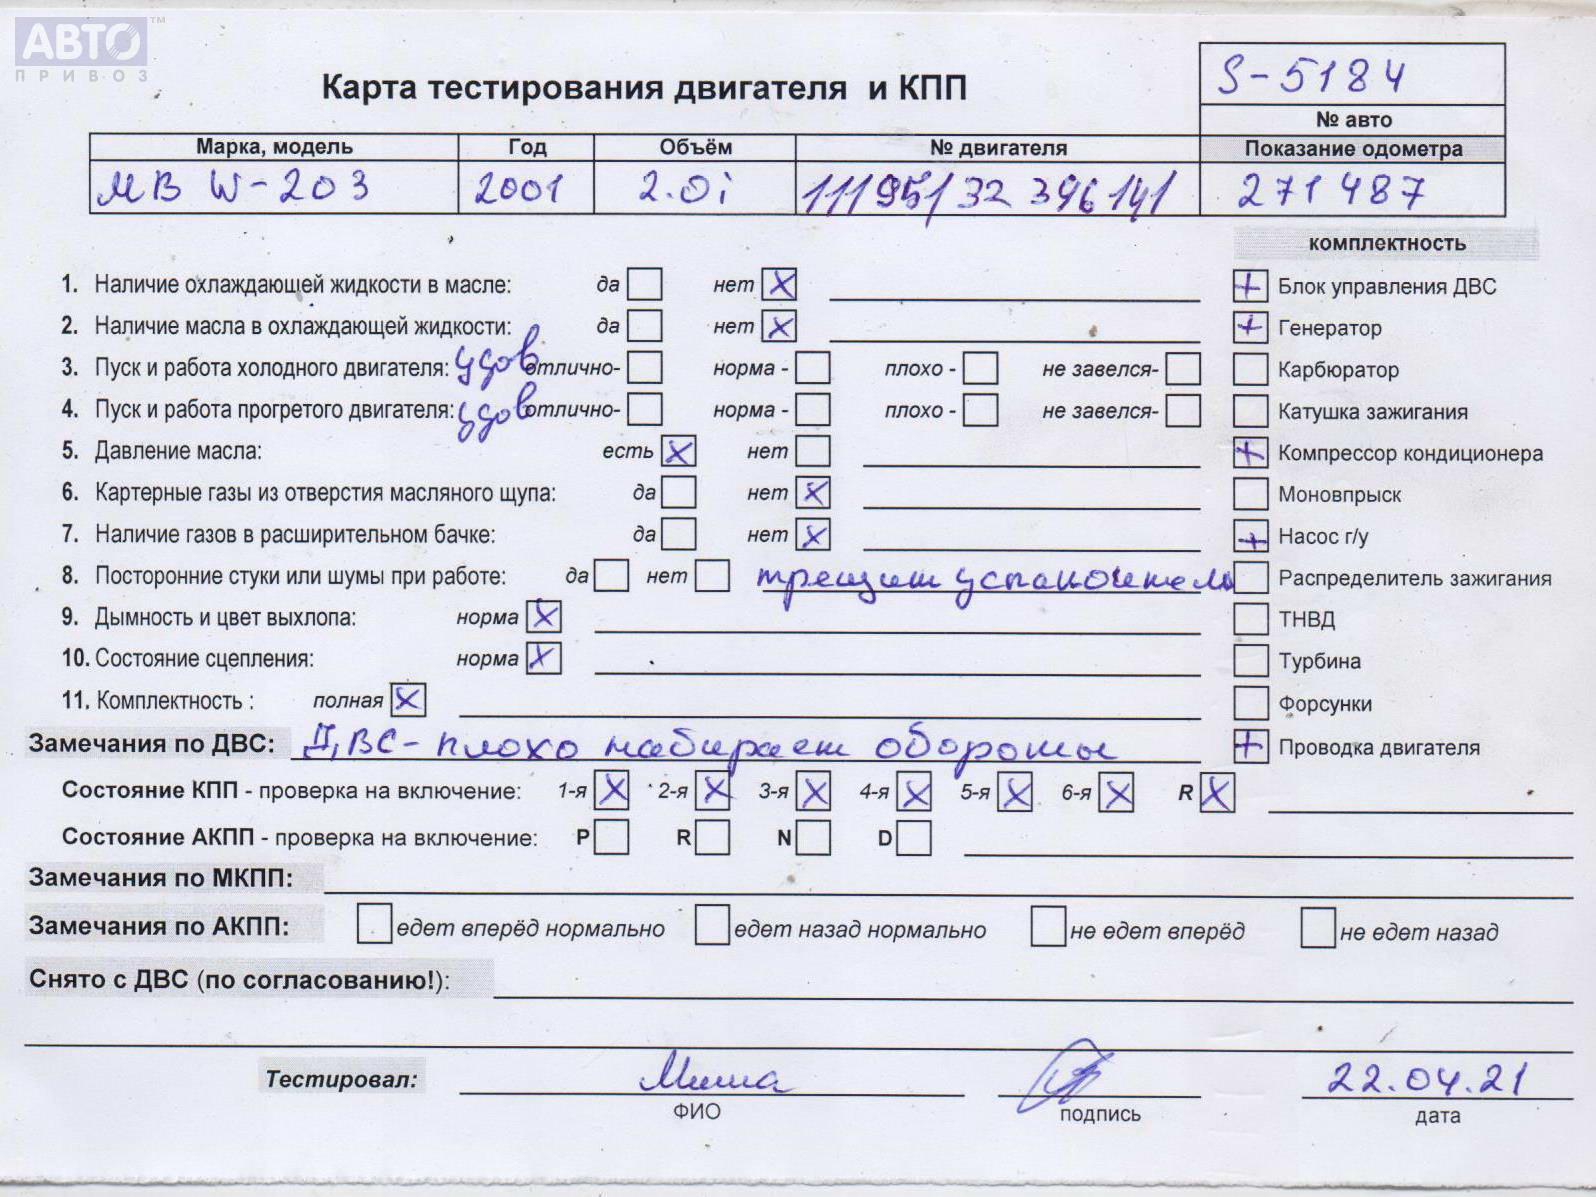 АВТО™
ПРИВОЗ
Карта тестирования двигателя и КПП
S-5184
№ авто
Марка, модель Год Объём № двигателя Показание одометра
МВ W-203 2001 2.0i 111951/32 396141 271487
комплектность
1. Наличие охлаждающей жидкости в масле: да нет X + Блок управления ДВС
2. Наличие масла в охлаждающей жидкости: да нет X + Генератор
3. Пуск и работа холодного двигателя: удов отлично- норма - плохо - не завелся- Карбюратор
4. Пуск и работа прогретого двигателя: удов отлично- норма - плохо - не завелся- Катушка зажигания
5. Давление масла: есть X нет + Компрессор кондиционера
6. Картерные газы из отверстия масляного щупа: да нет X Моновпрыск
7. Наличие газов в расширительном бачке: да нет X + Насос г/у
8. Посторонние стуки или шумы при работе: да нет трещит успокоитель Распределитель зажигания
9. Дымность и цвет выхлопа: норма X ТНВД
10. Состояние сцепления: норма X Турбина
11. Комплектность : полная X Форсунки
Замечания по ДВС: ДВС - плохо набирает обороты + Проводка двигателя
Состояние КПП - проверка на включение: 1-я X 2-я X 3-я X 4-я X 5-я X 6-я X R X
Состояние АКПП - проверка на включение: P R N D
Замечания по МКПП:
Замечания по АКПП: едет вперёд нормально едет назад нормально не едет вперёд не едет назад
Снято с ДВС (по согласованию!):
Тестировал: Миша 22.04.21
ФИО подпись дата